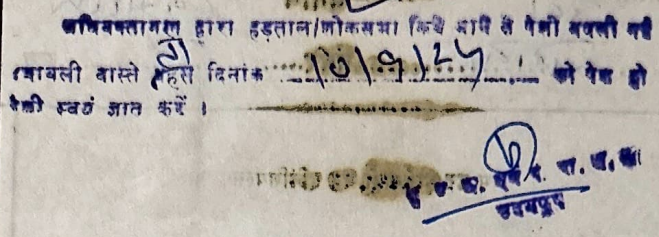 अभिवक्तागण द्वारा हड़ताल/शोकसभा किये जाने से पेशी बदली गई
पत्रावली वास्ते बहस दिनांक 10/9/24 को पेश हो
पेशी स्वयं ज्ञात करें ।
उदयपुर